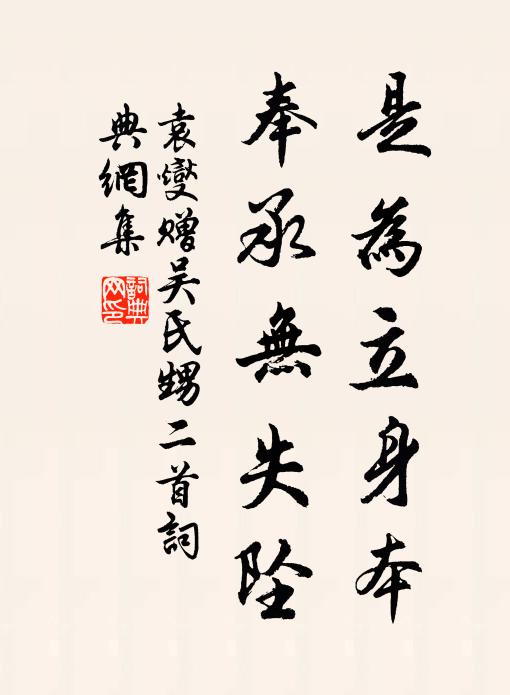 是為立身本
奉承無失墜
袁燮贈吳氏甥二首詞
典網集
詞典
网印